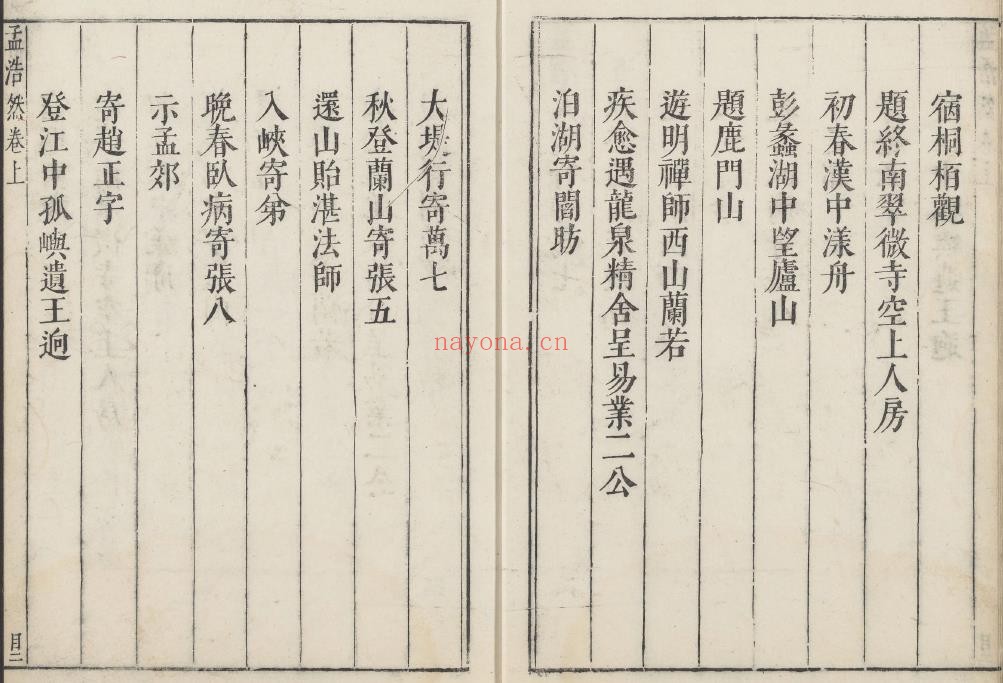 宿桐栢觀
題終南翠微寺空上人房
初春漢中漾舟
彭蠡湖中望廬山
題鹿門山
遊明禪師西山蘭若
疾愈遇龍泉精舍呈易業二公
泊湖寄閻昉
大堤行寄萬七
秋登蘭山寄張五
還山貽湛法師
入峽寄弟
晚春臥病寄張八
示孟郊
寄趙正字
登江中孤嶼遺王逈
孟浩然卷上
目二
nayona.cn